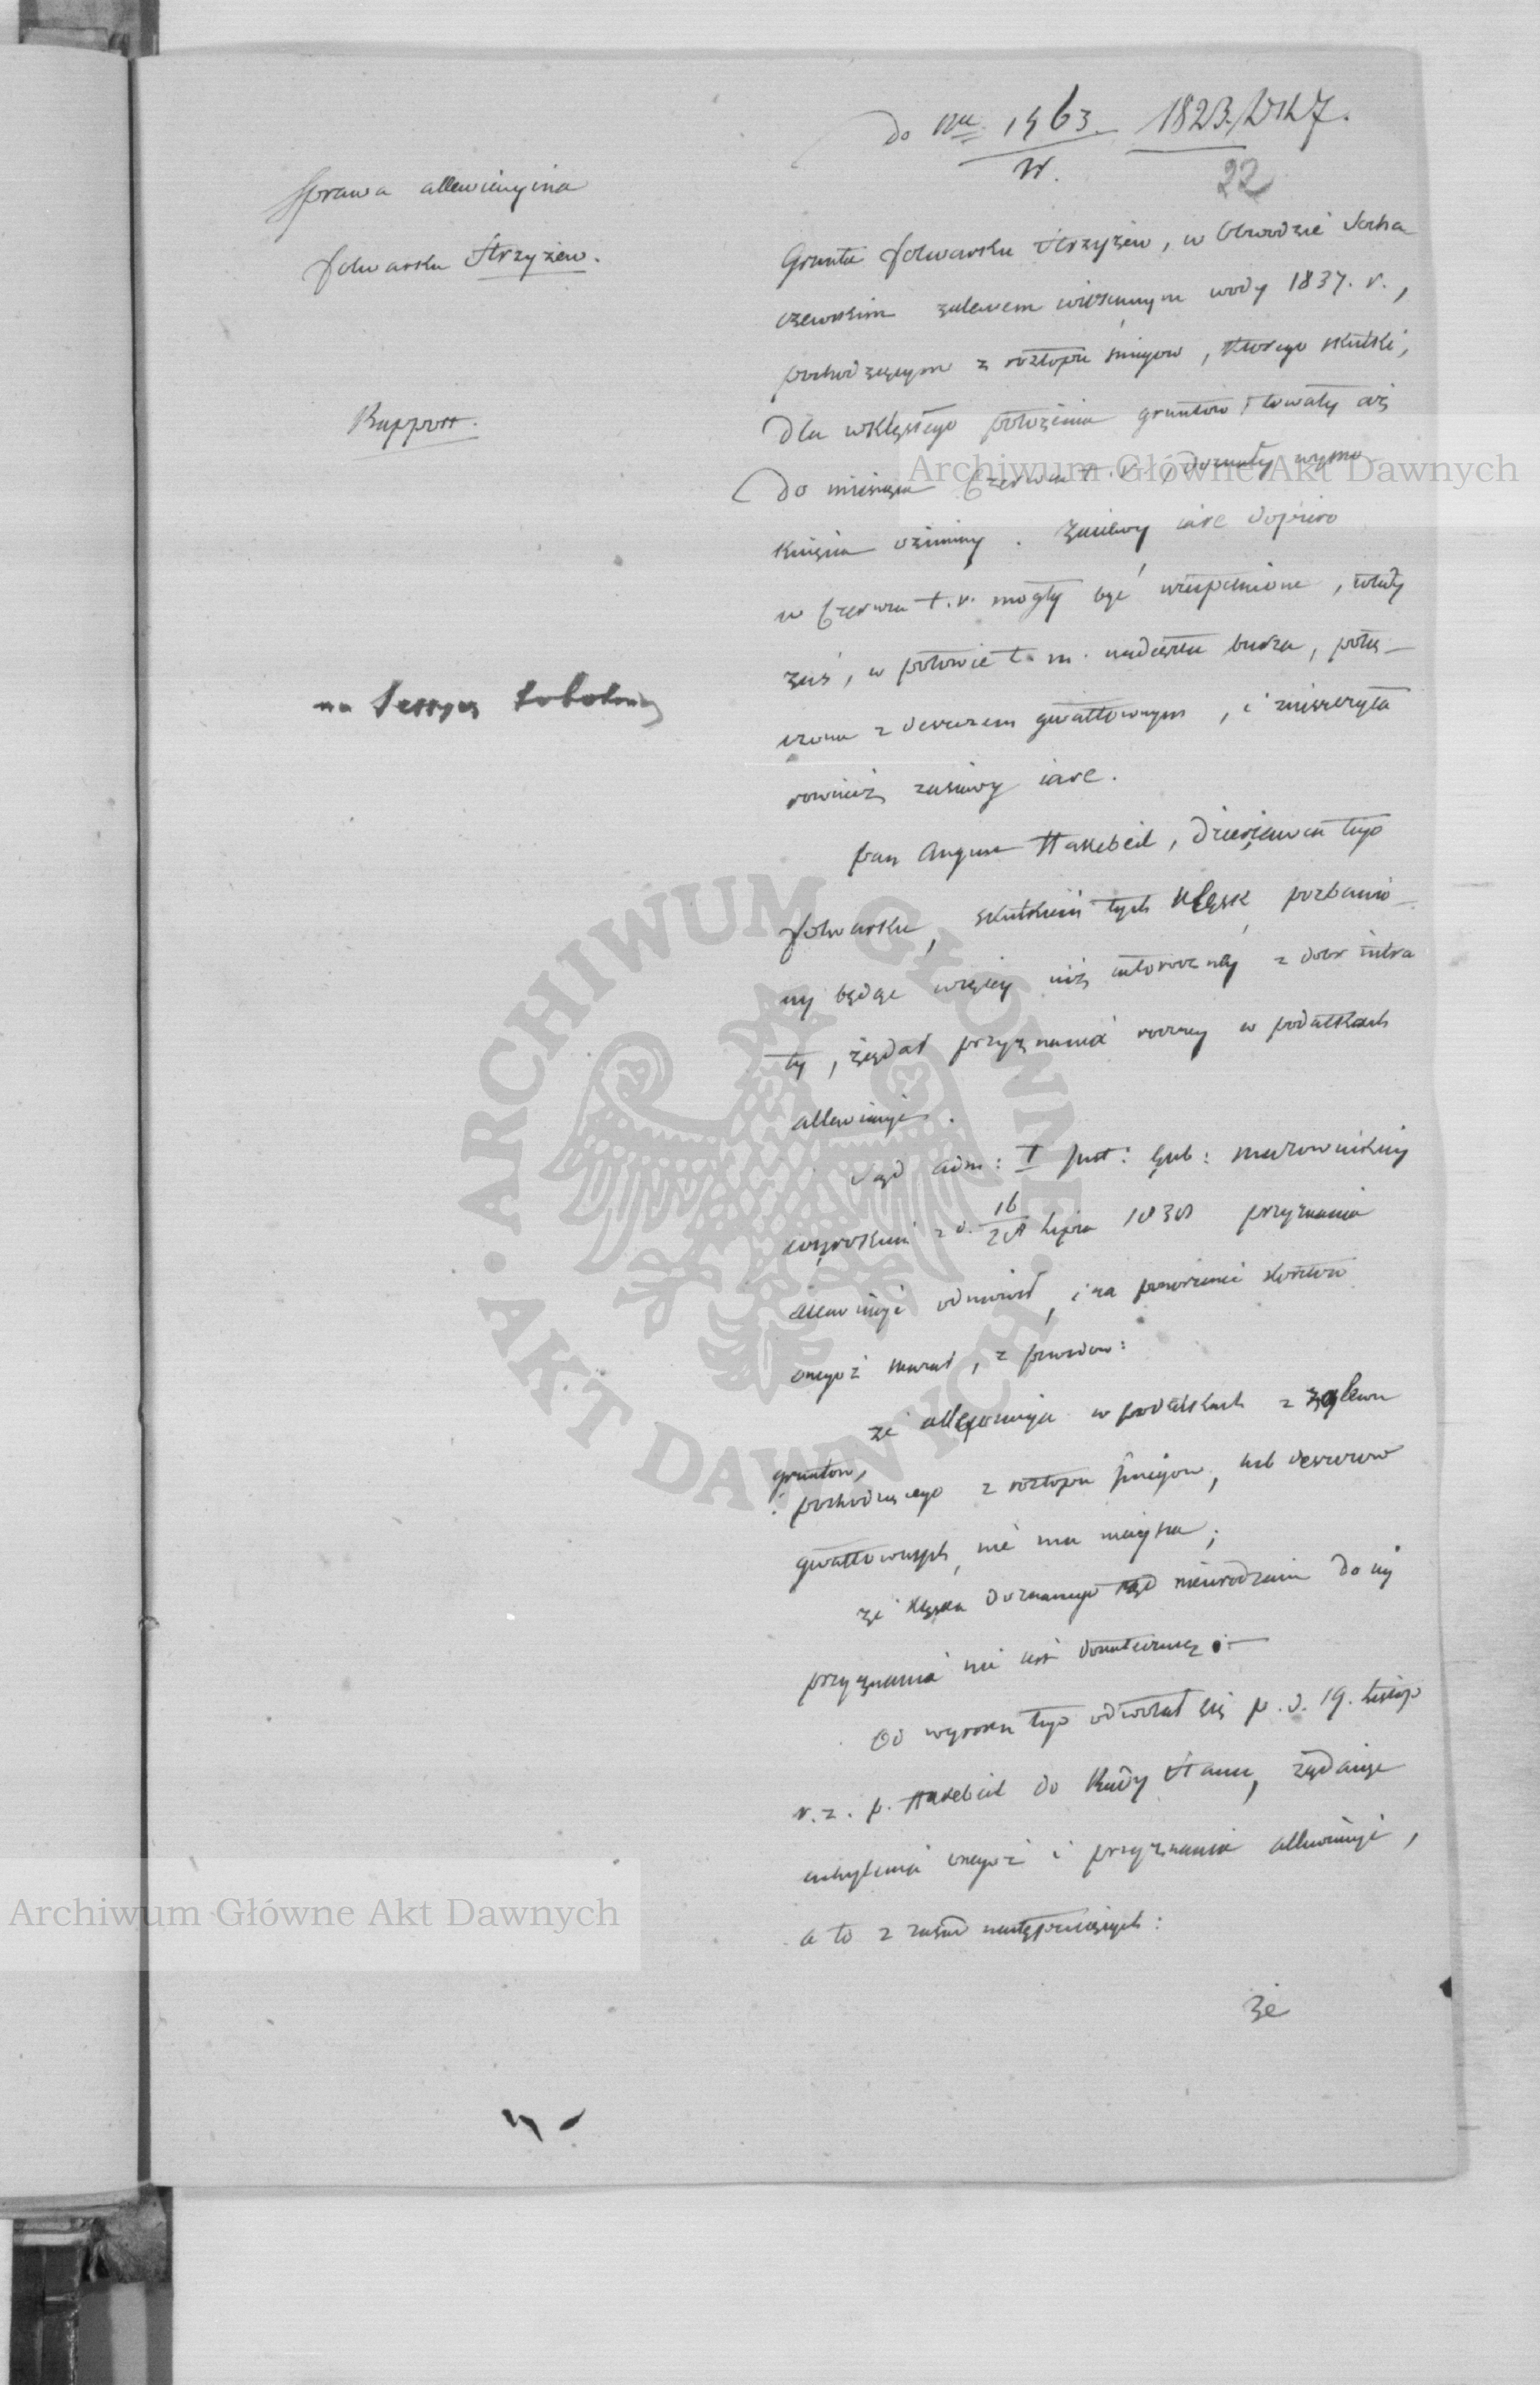 do Nru 1463. 1823. WR7.
W.
22
Sprawa allewiacyina
folwarku Strzyżew.
Rapport.
na Sessyą sobotnią
Grunta folwarku Strzyżew, w Obwodzie Socha
czewskim zalewem wiosennym wody 1837. r.,
pochodzącym z roztopu śniegow, ktorego skutki,
dla wklęsłego położenia gruntow, trwały aż
do miesiąca Czerwca t. r., doznały wymo
knięcia oziminy. Zasiewy iare dopiero
w Czerwcu t. r. mogły być uzupełnione, wtedy
zaś, w połowie t. m. nadeszła burza, połą-
czona z deszczem gwałtownym, i zniszczyła
rownież zasiewy iare.
Pan August Hakebeil, dzierżawca tego
folwarku, skutkiem tych klęsk pozbawio-
ny będąc więcey niż całoroczney z dobr intra
ty, żądał przyznania roczney w podatkach
allewiacyi.
Sąd adm: I Inst: Gub: Mazowieckiey
wyrokiem z d. 16/28 Lipca 1838 przyznania
allewiacyi odmowił, i na poniesienie kosztow
onegoż skazał, z powodow:
że allewiacya w podatkach z zalewu
gruntow,
pochodzącego z roztopu śniegow, lub deszczow
gwałtownych, nie ma mieysca;
że klęska doznanego stąd nieurodzaiu do iey
przyznania nie iest dostateczną.-
Od wyroku tego odwołał się p. d. 19. Listop
r. z. p. Hakebeil do Rady Stanu, żądaiąc
uchylenia onegoż i przyznania allewiacyi,
a to z zasad następuiących:
że